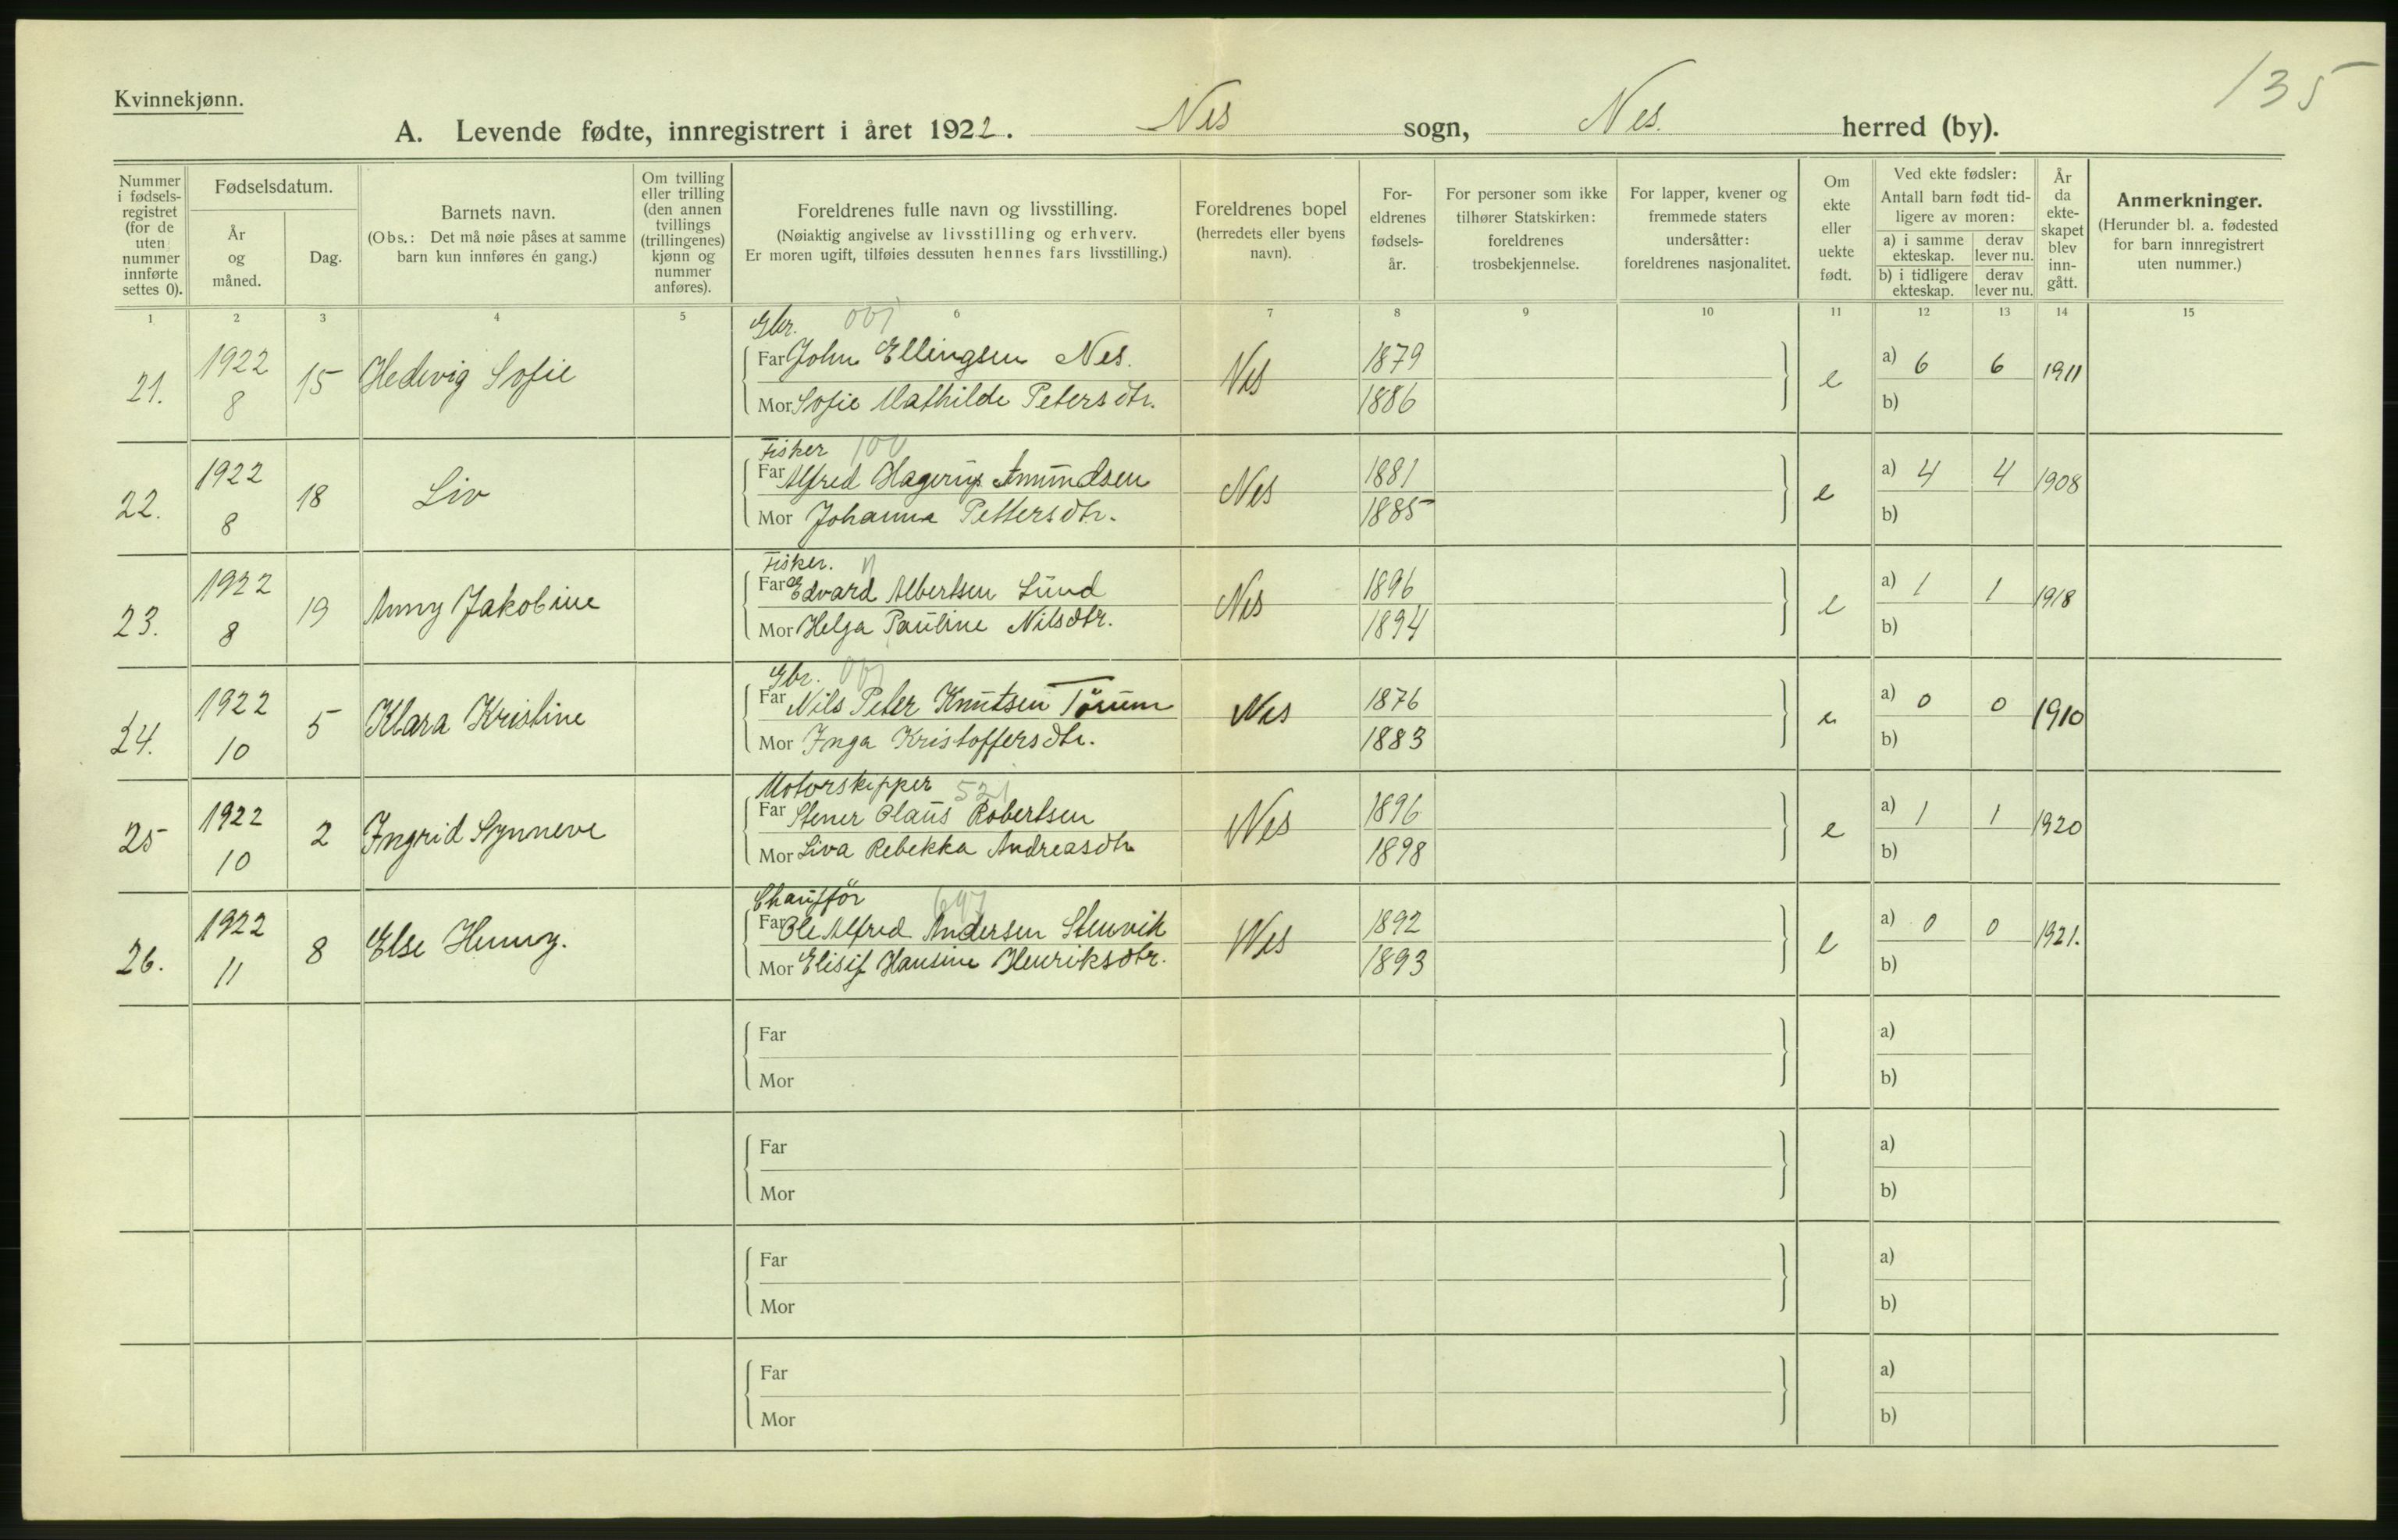 135
Kvinnekjønn.
A. Levende fødte, innregistrert i året 1922. Nes sogn, Nes. herred (by).
Nummer i fødselsregistret (for de uten nummer innførte settes 0).
Fødselsdatum.
År og måned.
Dag.
Barnets navn.
(Obs.: Det må nøie påses at samme barn kun innføres én gang.)
Om tvilling eller trilling (den annen tvillings (trillingenes) kjønn og nummer anføres).
Foreldrenes fulle navn og livsstilling.
(Nøiaktig angivelse av livsstilling og erhverv.
Er moren ugift, tilføies dessuten hennes fars livsstilling.)
Foreldrenes bopel (herredets eller byens navn).
For-eldrenes fødsels-år.
For personer som ikke tilhører Statskirken: foreldrenes trosbekjennelse.
For lapper, kvener og fremmede staters undersåtter: foreldrenes nasjonalitet.
Om ekte eller uekte født.
Ved ekte fødsler:
Antall barn født tid-ligere av moren:
a) i samme ekteskap. derav lever nu.
b) i tidligere ekteskap. derav lever nu.
År da ekte-skapet blev inn-gått.
Anmerkninger.
(Herunder bl. a. fødested for barn innregistrert uten nummer.)
1 2 3 4 5 6 7 8 9 10 11 12 13 14 15
Gbr. 001
21. 1922 8 15 Hedvig Sofie Far John Ellingsen Nes. Nes 1879 e a) 6 6 1911
Mor Sofie Mathilde Petersdtr. 1886 b)
Fisker 100
22. 1922 8 18 Liv Far Alfred Hagerup Amundsen Nes 1881 e a) 4 4 1908
Mor Johanna Pettersdtr. 1885 b)
Fisker. "
23. 1922 8 19 Anny Jakobine Far Edvard Albertsen Lund Nes 1896 e a) 1 1 1918
Mor Helga Pauline Nilsdtr. 1894 b)
Gbr. 001
24. 1922 10 5 Klara Kristine Far Nils Peter Knutsen Tørum Nes 1876 e a) 0 0 1910
Mor Inga Kristoffersdtr. 1883 b)
Motorskipper 521
25 1922 10 2 Ingrid Synneve Far Stener Olaus Robertsen Nes 1896 e a) 1 1 1920
Mor Liva Rebekka Andreasdtr 1898 b)
Chaufför 697
26. 1922 11 8 Else Henny. Far Ole Alfred Andersen Stenvik Nes 1892 e a) 0 0 1921.
Mor Elisif Hansine Henriksdtr. 1893 b)
Far a)
Mor b)
Far a)
Mor b)
Far a)
Mor b)
Far a)
Mor b)